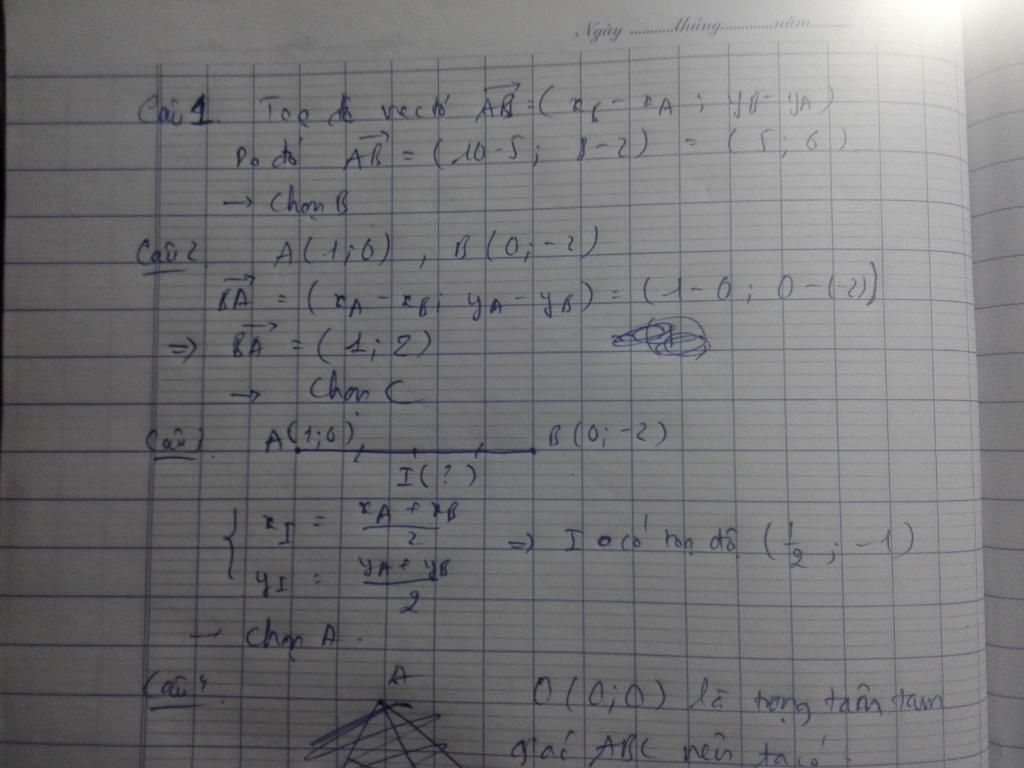 Ngày ..........tháng............năm..........
Câu 1. Toạ độ vectơ AB→ = ( x_B - x_A ; y_B - y_A )
Do đó AB→ = ( 10 - 5 ; 8 - 2 ) = ( 5 ; 6 ).
→ Chọn B
Câu 2 A ( 1 ; 0 ) , B ( 0 ; -2 )
BA→ = ( x_A - x_B ; y_A - y_B ) = ( 1 - 0 ; 0 - (-2) )
=> BA→ = ( 1 ; 2 )
→ Chọn C
Câu 3 A ( 1 ; 0 ) B ( 0 ; -2 )
I ( ? )
{ x_I = (x_A + x_B)/2
=> I có toạ độ ( 1/2 ; -1 )
y_I = (y_A + y_B)/2
→ Chọn A .
Câu 4 A O ( 0 ; 0 ) là trọng tâm tam
giác ABC nên ta có